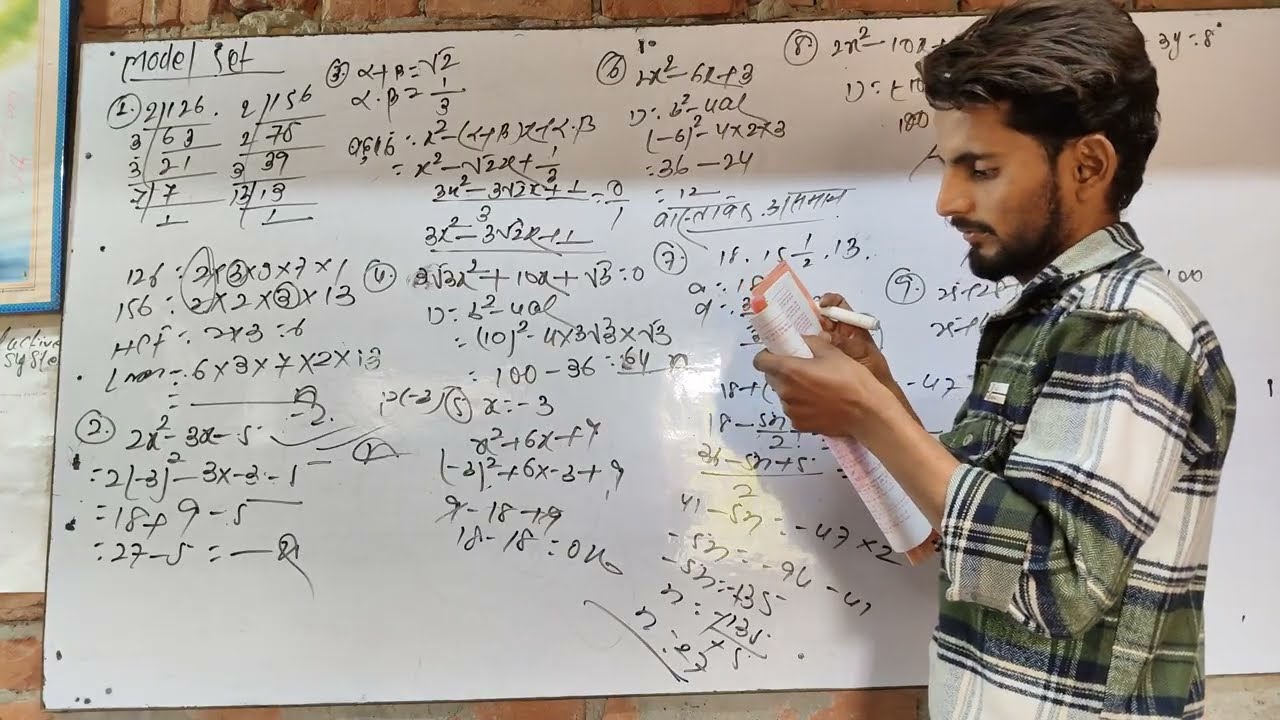 Model Set
① 2|126. 2|156
3|63 2|78
3|21 3|39
7|7 13|13
1 1
126 = 2×3×3×7×1
156 = 2×2×3×13
HCF = 2×3 = 6
Lcm = 6×3×7×2×13
=
②. 2x²-3x-5
= 2(-3)²-3x-3-1
= 18+9-5
= 27-5 =
③. α+β=√2
α.β = 1/3
x²-(α+β)x+α.β
= x²-√2x+1/3
3x²-3√2x+1/3 = 0/1
3x²-3√2x+1
④ 3√3x²+10x+√3=0
D = b²-4ac
= (10)²-4×3√3×√3
= 100-36 = 64
P(-3) ⑤ x=-3
x²+6x+9
(-3)²+6x-3+9
9-18+9
18-18=0
⑥ 2x²-6x+3
D = b²-4ac
(-6)²-4×2×3
= 36-24
= 12
वास्तविक असमान
⑦ 18. 15 1/2 .13.
a =
d =
18+(
-47
18-5n
36-5n+5
2
41-5n = -47×2
-5n = -94-41
-5n = -135
n = -135/-5
n = 27
⑧ 2x²-10x+
3y=8
D =
180
⑨
100
active
syste